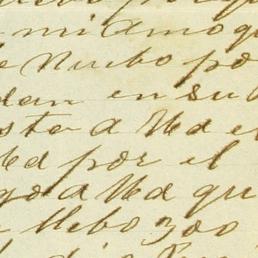 mi Amo q
e Nuebo por
dan en su b
sto A Vd el
Vd por el
go A Vd qu
Llebo 300